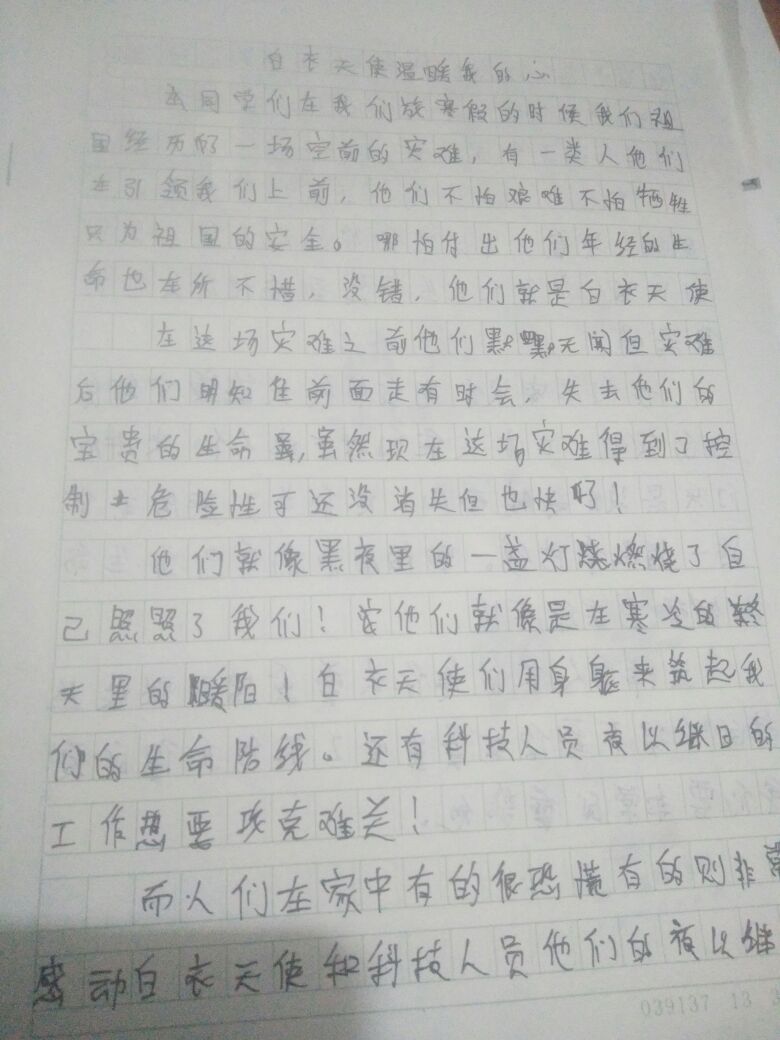 白衣天使温暖我的心
同学们在我们放寒假的时候我们祖
国经历了一场空前的灾难，有一类人他们
在引领我们上前，他们不怕艰难不怕牺牲
只为祖国的安全。哪怕付出他们年轻的生
命也在所不惜，没错，他们就是白衣天使
在这场灾难之前他们默默无闻但灾难
后他们明知往前面走有时会，失去他们的
宝贵的生命，虽然现在这场灾难得到了控
制 危险性可还没消失但也快了！
他们就像黑夜里的一盏灯燃烧了自
己照照了我们！他们就像是在寒冷的
天里的暖阳！白衣天使们用身躯来筑起我
们的生命防线。还有科技人员夜以继日的
工作想要攻克难关！
而人们在家中有的很恐慌有的则非常
感动白衣天使和科技人员他们的夜以继
039137 13